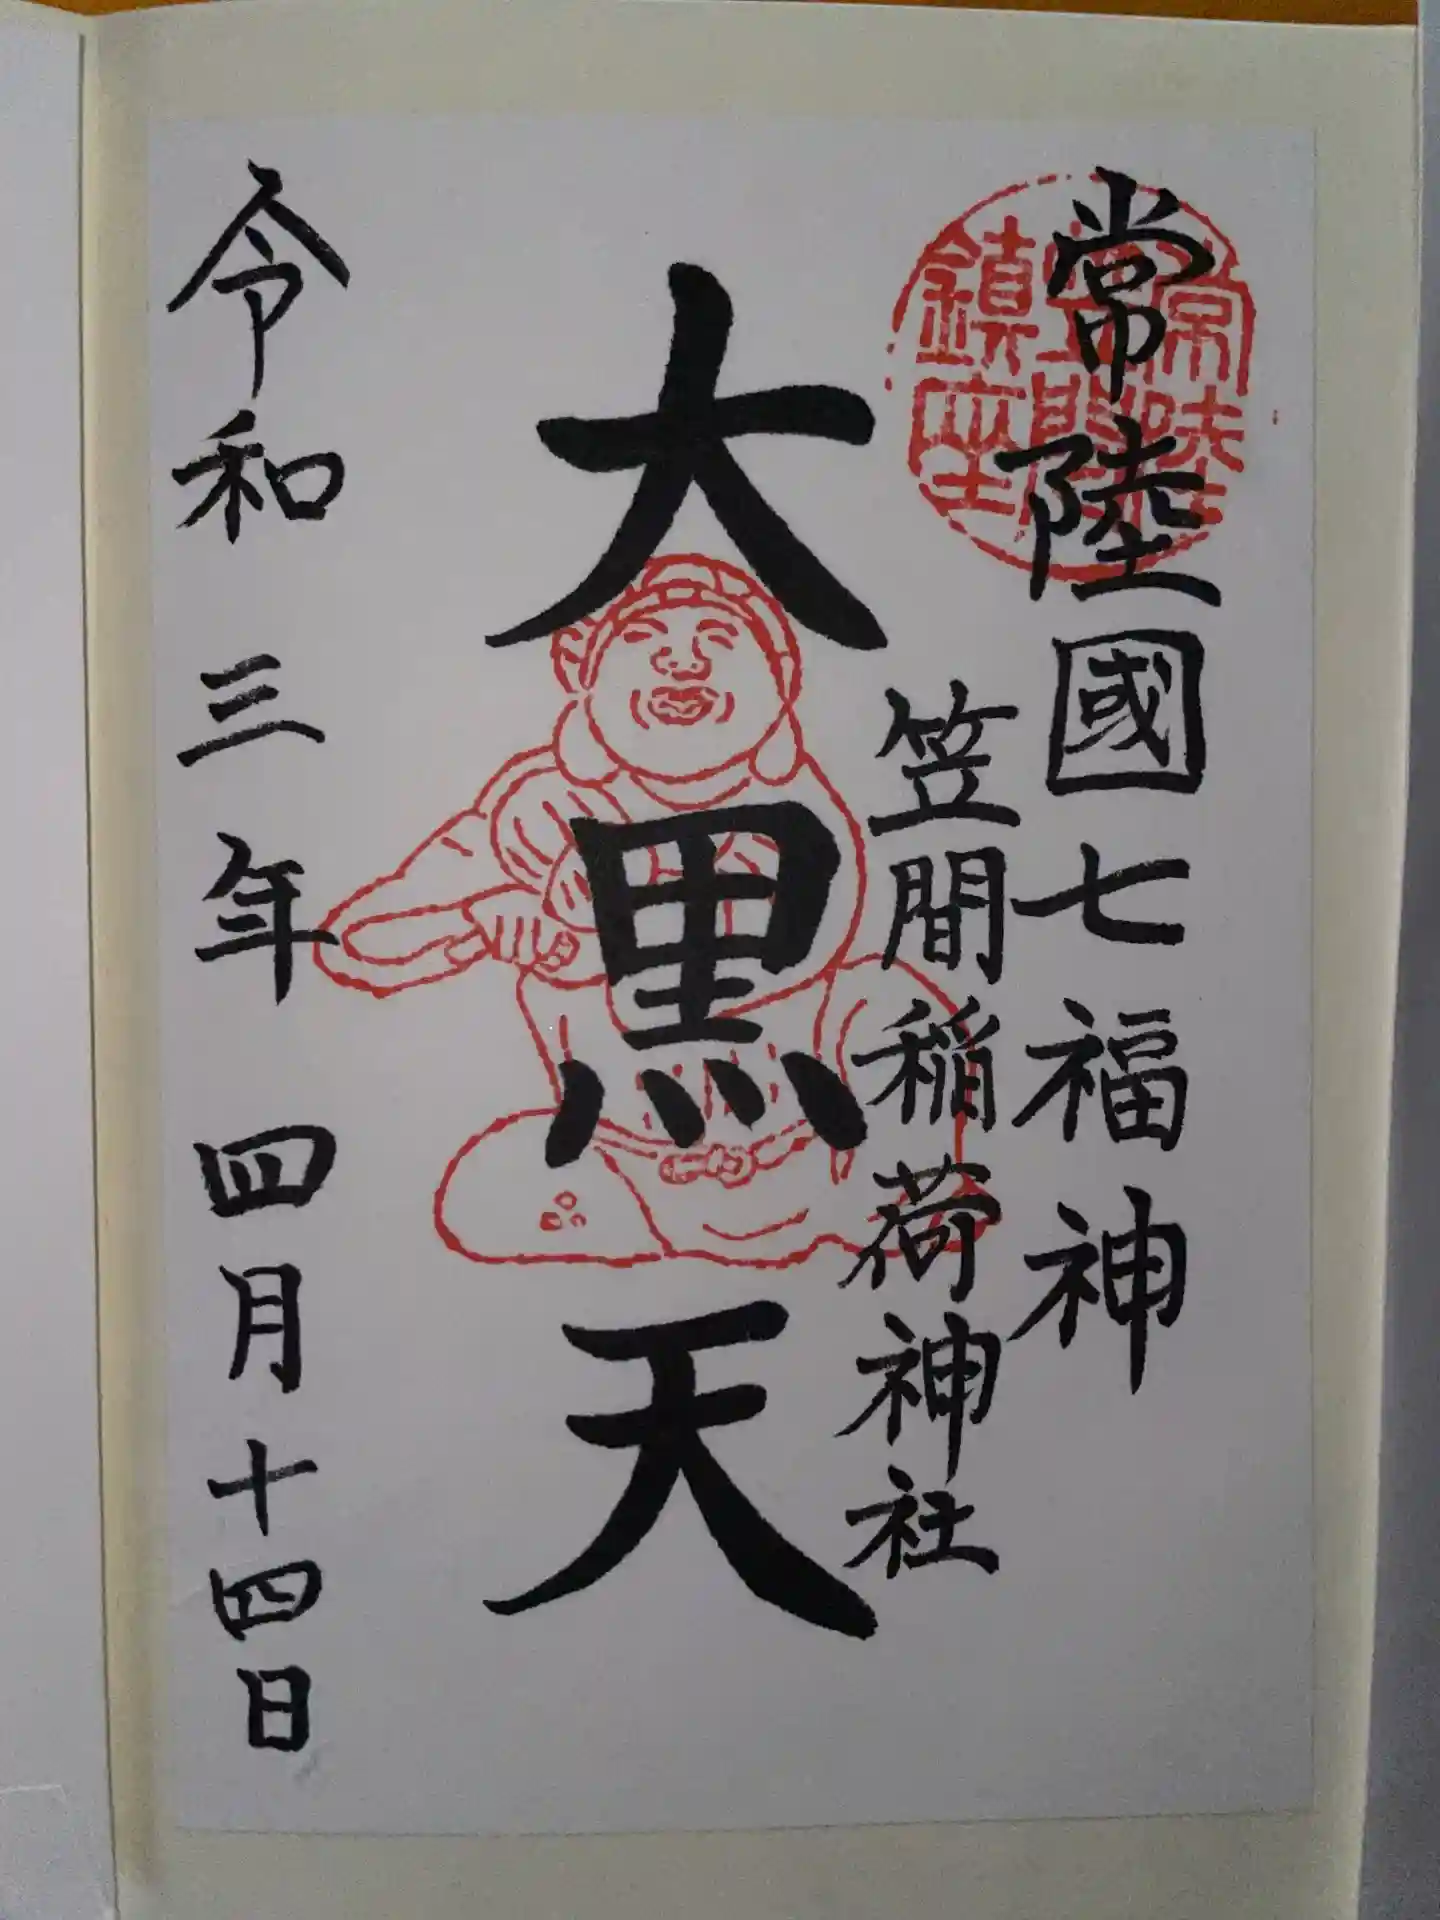 常陸國七福神
笠間稲荷神社
大黒天
令和三年四月十四日
常陸
笠間
鎮座